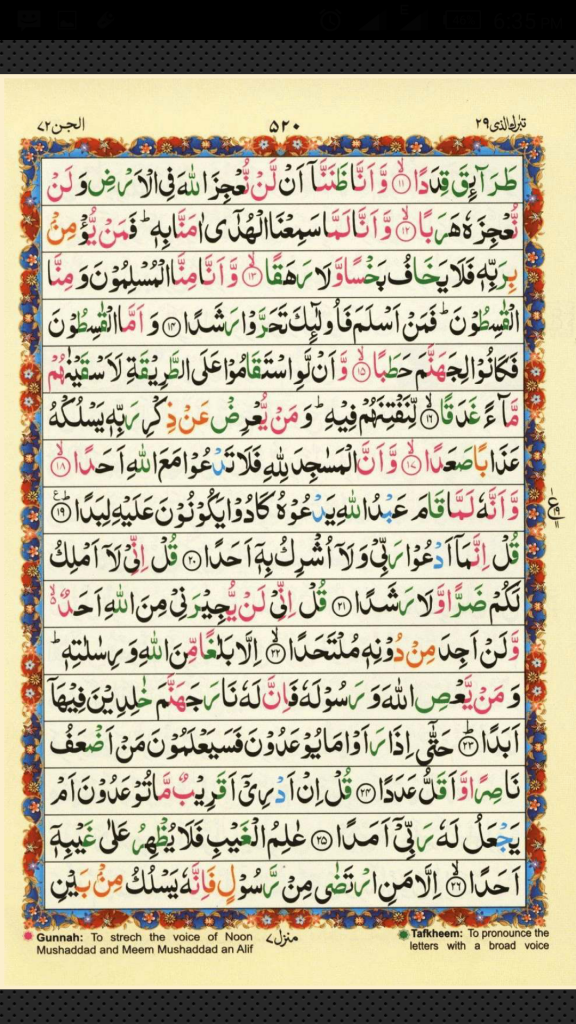 6:35
تبٰرك الذی ٢٩
٥٢٠
الجن ٧٢
طَرَآئِقَ قِدَدًا ۙ‏﴿۱۱﴾ وَّ اَنَّا ظَنَنَّاۤ اَنْ لَّنْ نُّعْجِزَ اللّٰهَ فِی الْاَرْضِ وَ لَنْ
نُّعْجِزَهٗ هَرَبًا ۙ‏﴿۱۲﴾ وَّ اَنَّا لَمَّا سَمِعْنَا الْهُدٰۤی اٰمَنَّا بِهٖ ؕ فَمَنْ یُّؤْمِنْۢ
بِرَبِّهٖ فَلَا یَخَافُ بَخْسًا وَّ لَا رَهَقًا ۙ‏﴿۱۳﴾ وَّ اَنَّا مِنَّا الْمُسْلِمُوْنَ وَ مِنَّا
الْقٰسِطُوْنَ ؕ فَمَنْ اَسْلَمَ فَاُولٰٓئِكَ تَحَرَّوْا رَشَدًا ﴿۱۴﴾ وَ اَمَّا الْقٰسِطُوْنَ
فَكَانُوْا لِجَهَنَّمَ حَطَبًا ۙ‏﴿۱۵﴾ وَّ اَنْ لَّوِ اسْتَقَامُوْا عَلَی الطَّرِیْقَةِ لَاَسْقَیْنٰهُمْ
مَّآءً غَدَقًا ۙ‏﴿۱۶﴾ لِّنَفْتِنَهُمْ فِیْهِ ؕ وَ مَنْ یُّعْرِضْ عَنْ ذِكْرِ رَبِّهٖ یَسْلُكْهُ
عَذَابًا صَعَدًا ۙ‏﴿۱۷﴾ وَّ اَنَّ الْمَسٰجِدَ لِلّٰهِ فَلَا تَدْعُوْا مَعَ اللّٰهِ اَحَدًا ۙ‏﴿۱۸﴾
وَّ اَنَّهٗ لَمَّا قَامَ عَبْدُ اللّٰهِ یَدْعُوْهُ كَادُوْا یَكُوْنُوْنَ عَلَیْهِ لِبَدًا ؕ‏﴿۱۹﴾
ع
قُلْ اِنَّمَاۤ اَدْعُوْا رَبِّیْ وَ لَاۤ اُشْرِكُ بِهٖۤ اَحَدًا ﴿۲۰﴾ قُلْ اِنِّیْ لَاۤ اَمْلِكُ
لَكُمْ ضَرًّا وَّ لَا رَشَدًا ﴿۲۱﴾ قُلْ اِنِّیْ لَنْ یُّجِیْرَنِیْ مِنَ اللّٰهِ اَحَدٌ ۙ۬
وَّ لَنْ اَجِدَ مِنْ دُوْنِهٖ مُلْتَحَدًا ۙ‏﴿۲۲﴾ اِلَّا بَلٰغًا مِّنَ اللّٰهِ وَ رِسٰلٰتِهٖ ؕ
وَ مَنْ یَّعْصِ اللّٰهَ وَ رَسُوْلَهٗ فَاِنَّ لَهٗ نَارَ جَهَنَّمَ خٰلِدِیْنَ فِیْهَاۤ
اَبَدًا ؕ‏﴿۲۳﴾ حَتّٰۤی اِذَا رَاَوْا مَا یُوْعَدُوْنَ فَسَیَعْلَمُوْنَ مَنْ اَضْعَفُ
نَاصِرًا وَّ اَقَلُّ عَدَدًا ﴿۲۴﴾ قُلْ اِنْ اَدْرِیْۤ اَقَرِیْبٌ مَّا تُوْعَدُوْنَ اَمْ
یَجْعَلُ لَهٗ رَبِّیْۤ اَمَدًا ﴿۲۵﴾ عٰلِمُ الْغَیْبِ فَلَا یُظْهِرُ عَلٰی غَیْبِهٖۤ
اَحَدًا ۙ‏﴿۲۶﴾ اِلَّا مَنِ ارْتَضٰی مِنْ رَّسُوْلٍ فَاِنَّهٗ یَسْلُكُ مِنْۢ بَیْنِ
Gunnah: To strech the voice of Noon
Mushaddad and Meem Mushaddad an Alif
منزل ٧
Tafkheem: To pronounce the
letters with a broad voice